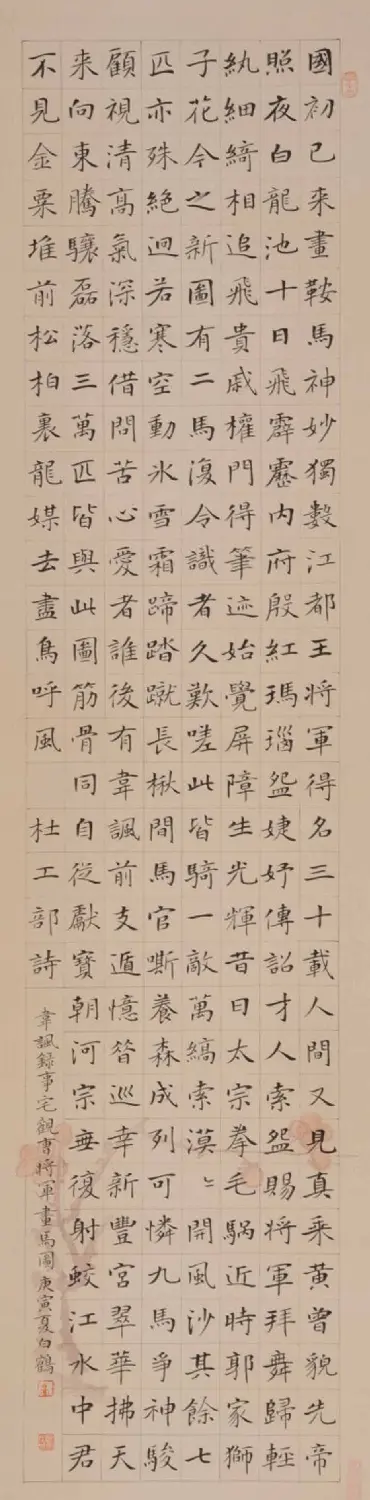 國初已来畫鞍馬神妙獨數江都王將軍得名三十載人間又見真乗黃曾貌先帝
照夜白龍池十日飛霹靂內府殷紅瑪瑙盌婕妤傳詔才人索盌賜將軍拜舞歸輕
紈細綺相追飛貴戚權門得筆迹始覺屏障生光輝昔日太宗拳毛騧近時郭家獅
子花今之新圖有二馬復令識者久歎嗟此皆騎一敵萬縞索漠〻開風沙其餘七
匹亦殊絕迥若寒空動氷雪霜蹄踏蹴長楸間馬官嘶養森成列可憐九馬爭神駿
顧視清高氣深穩借問苦心愛者誰後有韋諷前支遁憶昝巡幸新豐宮翠華拂天
来向東騰驤磊落三萬匹皆與此圖筋骨同自從獻寶朝河宗無復射蛟江水中君
不見金粟堆前松柏裏龍媒去盡鳥呼風 杜工部詩
韋諷錄事宅觀曹將軍畫馬圖庚寅夏白鶴